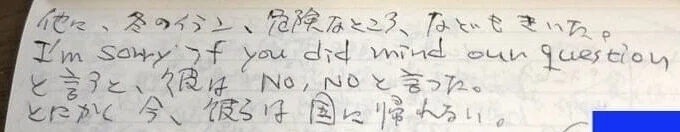 他に、冬のイラン、危険なところ、などもきいた。
I'm sorry if you did mind our question
と言うと、彼は NO, NO と言った。
とにかく今、彼らは国に帰れない。